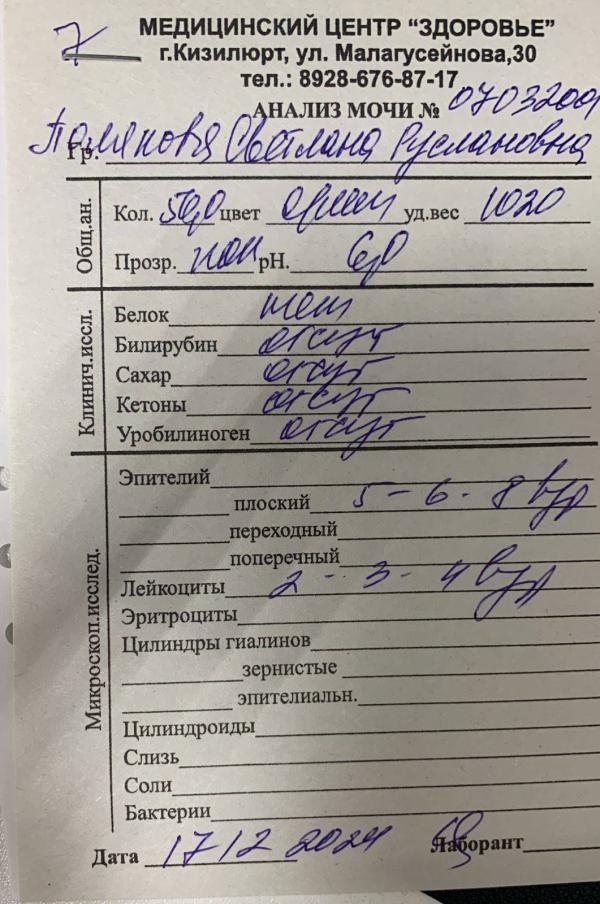 7
МЕДИЦИНСКИЙ ЦЕНТР “ЗДОРОВЬЕ”
г.Кизилюрт, ул. Малагусейнова,30
тел.: 8928-676-87-17
АНАЛИЗ МОЧИ № 07032001
Гр. Полякова Светлана Руслановна
Общ.ан.
Кол. 50,0 цвет уд.вес 1020
Прозр. рН. 6,0
Клинич.иссл.
Белок
Билирубин отсут
Сахар отсут
Кетоны отсут
Уробилиноген отсут
Микроскоп.исслед.
Эпителий
плоский 5 - 6 - 8 в/зр
переходный
поперечный
Лейкоциты 2 - 3 - 4 в/зр
Эритроциты
Цилиндры гиалинов
зернистые
эпителиальн.
Цилиндроиды
Слизь
Соли
Бактерии
Дата 17 12 2024 Лаборант